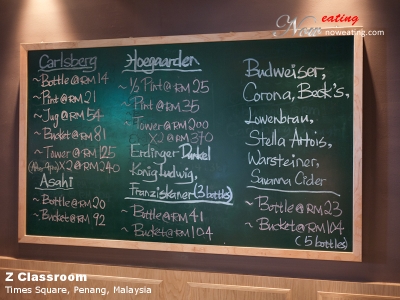 Now eating
noweating.com
Carlsberg
~Bottle@RM14
~Pint@RM21
~Jug@RM54
~Bucket@RM81
~Tower@RM125
(After 9pm) X2@RM240
Asahi
~Bottle@RM20
~Bucket@RM92
Hoegaarden
~½ Pint@RM25
~Pint@RM35
~Tower@RM200
X2@RM370
Erdinger Dunkel
Konig Ludwig,
Franziskaner (3 bottles)
~Bottle@RM41
~Bucket@RM104
Budweiser,
Corona, Beck's,
Lowenbrau,
Stella Artois,
Warsteiner,
Savanna Cider
~Bottle@RM23
~Bucket@RM104
(5 bottles)
Z Classroom
Times Square, Penang, Malaysia